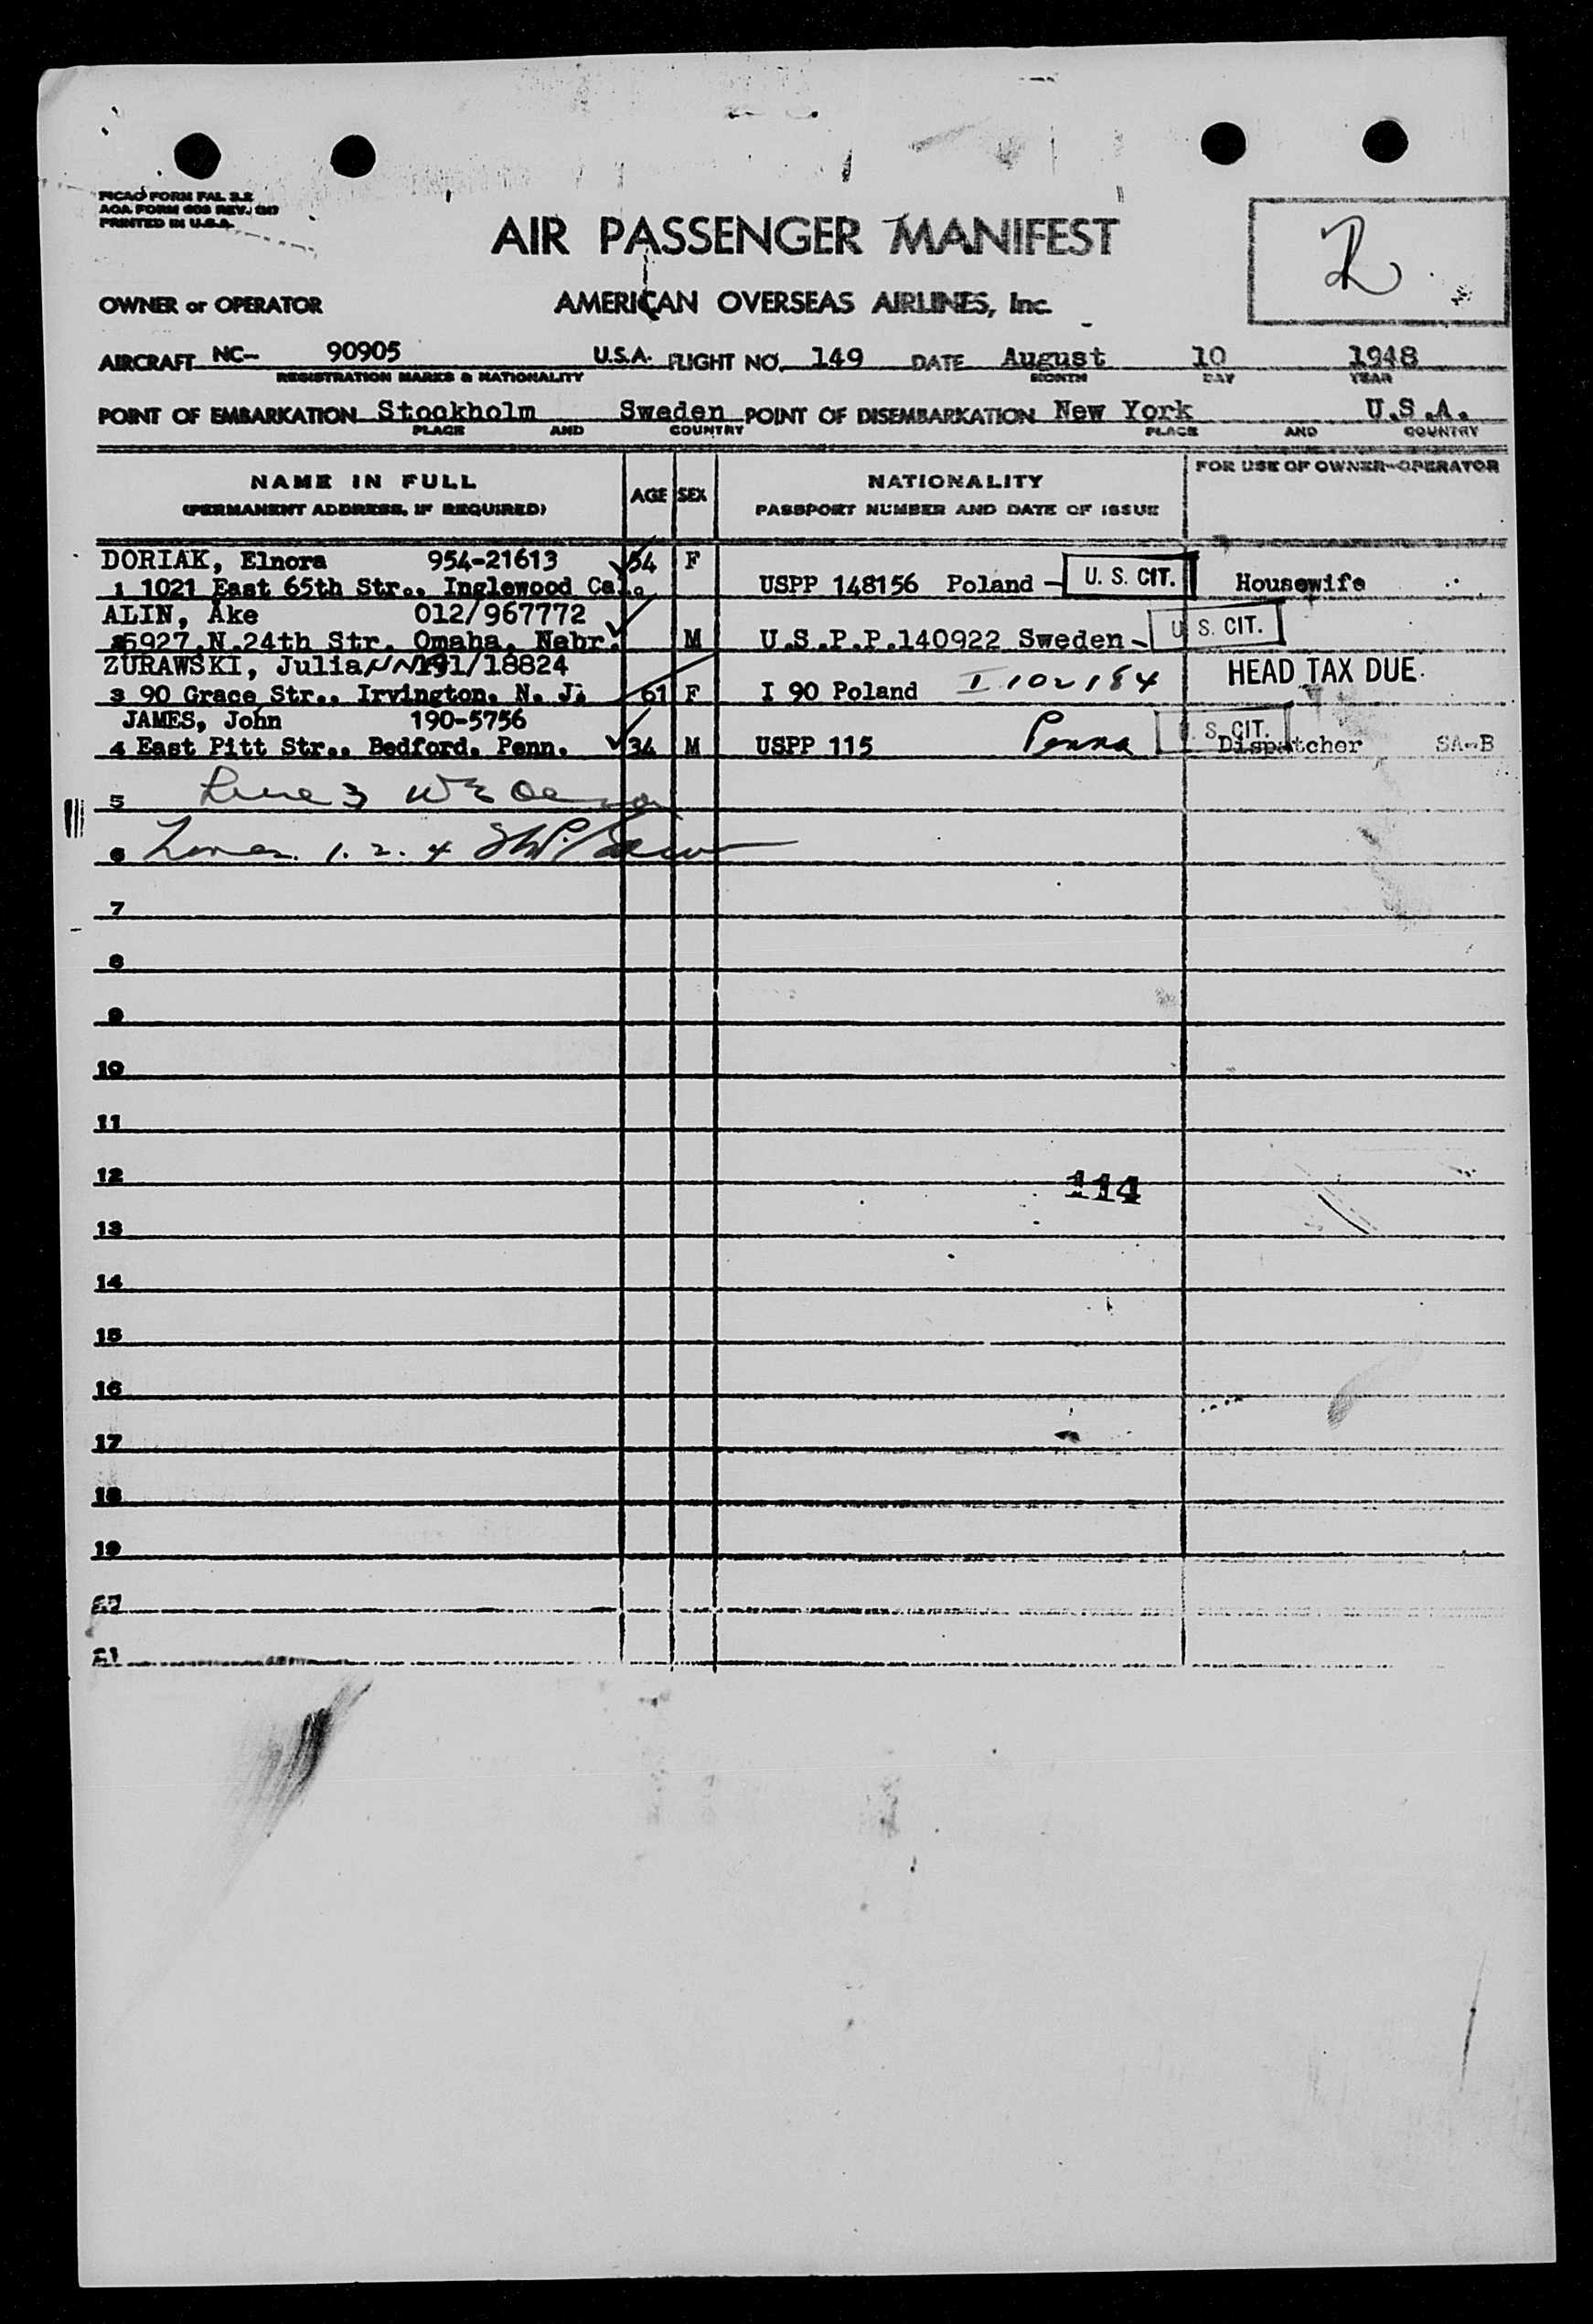 PICAO FORM FAL 3.2
AOA FORM 608 REV.
PRINTED IN U.S.A.
AIR PASSENGER MANIFEST
2
OWNER or OPERATOR AMERICAN OVERSEAS AIRLINES, Inc.
AIRCRAFT NC- 90905 U.S.A. FLIGHT NO. 149 DATE August 10 1948
REGISTRATION MARKS & NATIONALITY MONTH DAY YEAR
POINT OF EMBARKATION Stockholm Sweden POINT OF DISEMBARKATION New York U.S.A.
PLACE AND COUNTRY PLACE AND COUNTRY
NAME IN FULL AGE SEX NATIONALITY FOR USE OF OWNER-OPERATOR
(PERMANENT ADDRESS, IF REQUIRED) PASSPORT NUMBER AND DATE OF ISSUE
DORIAK, Elnora 954-21613 54 F
1 1021 East 65th Str., Inglewood Ca. USPP 148156 Poland - U. S. CIT. Housewife
ALIN, Åke 012/967772
5927.N.24th Str. Omaha, Nebr. M U.S.P.P.140922 Sweden - U. S. CIT.
ZURAWSKI, Julia 191/18824 HEAD TAX DUE.
3 90 Grace Str., Irvington, N. J. 61 F I 90 Poland I 102184
JAMES, John 190-5756 U. S. CIT.
4 East Pitt Str., Bedford, Penn. 34 M USPP 115 Penna Dispatcher SA-B
5 Line 3
6 Lines 1. 2. 4
7
8
9
10
11
12
114
13
14
15
16
17
18
19
20
21